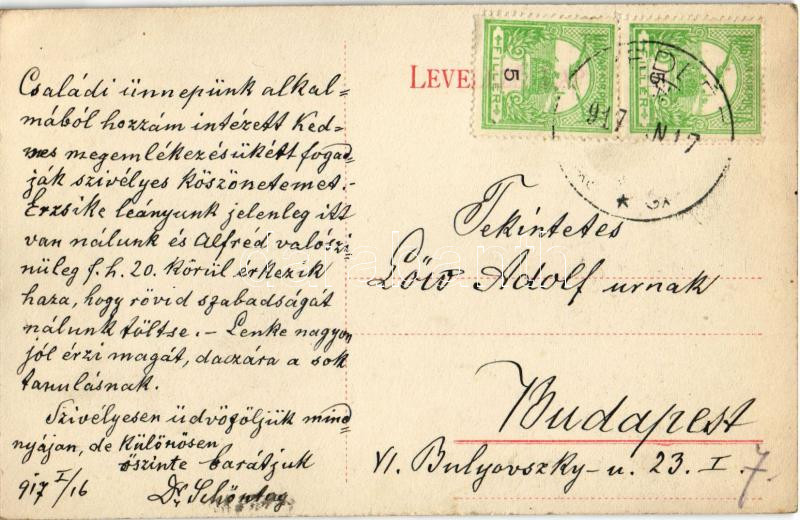 Családi ünnepünk alkal=
mából hozzám intézett Ked=
ves megemlékezésükért fogad=
ják szivélyes köszönetemet.-
Erzsike leányunk jelenleg itt
van nálunk és Alfréd valószi=
nüleg f. h. 20. körül érkezik
haza, hogy rövid szabadságát
nálunk töltse. - Lenke nagyon
jól érzi magát, daczára a sok
tanulásnak.
Szivélyesen üdvözöljük mind=
nyájan, de különösen
őszinte barátjuk
917 I/16
Dr. Schöntag
FILLÉR
5
FILLÉR
5
917
N 17
Tekintetes
Löw Adolf urnak
Budapest
VI. Bulyovszky-u. 23. I. 7.
darabanth